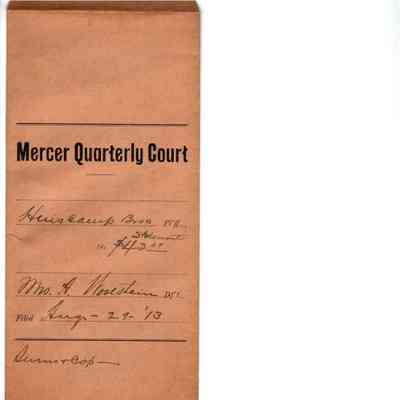 Mercer Quarterly Court
Henscamp Bros. Plff.
Statement
vs. $43.00
Mrs. H. Noelstein Dft.
Filed Aug - 29 - '13
Sum & Cop